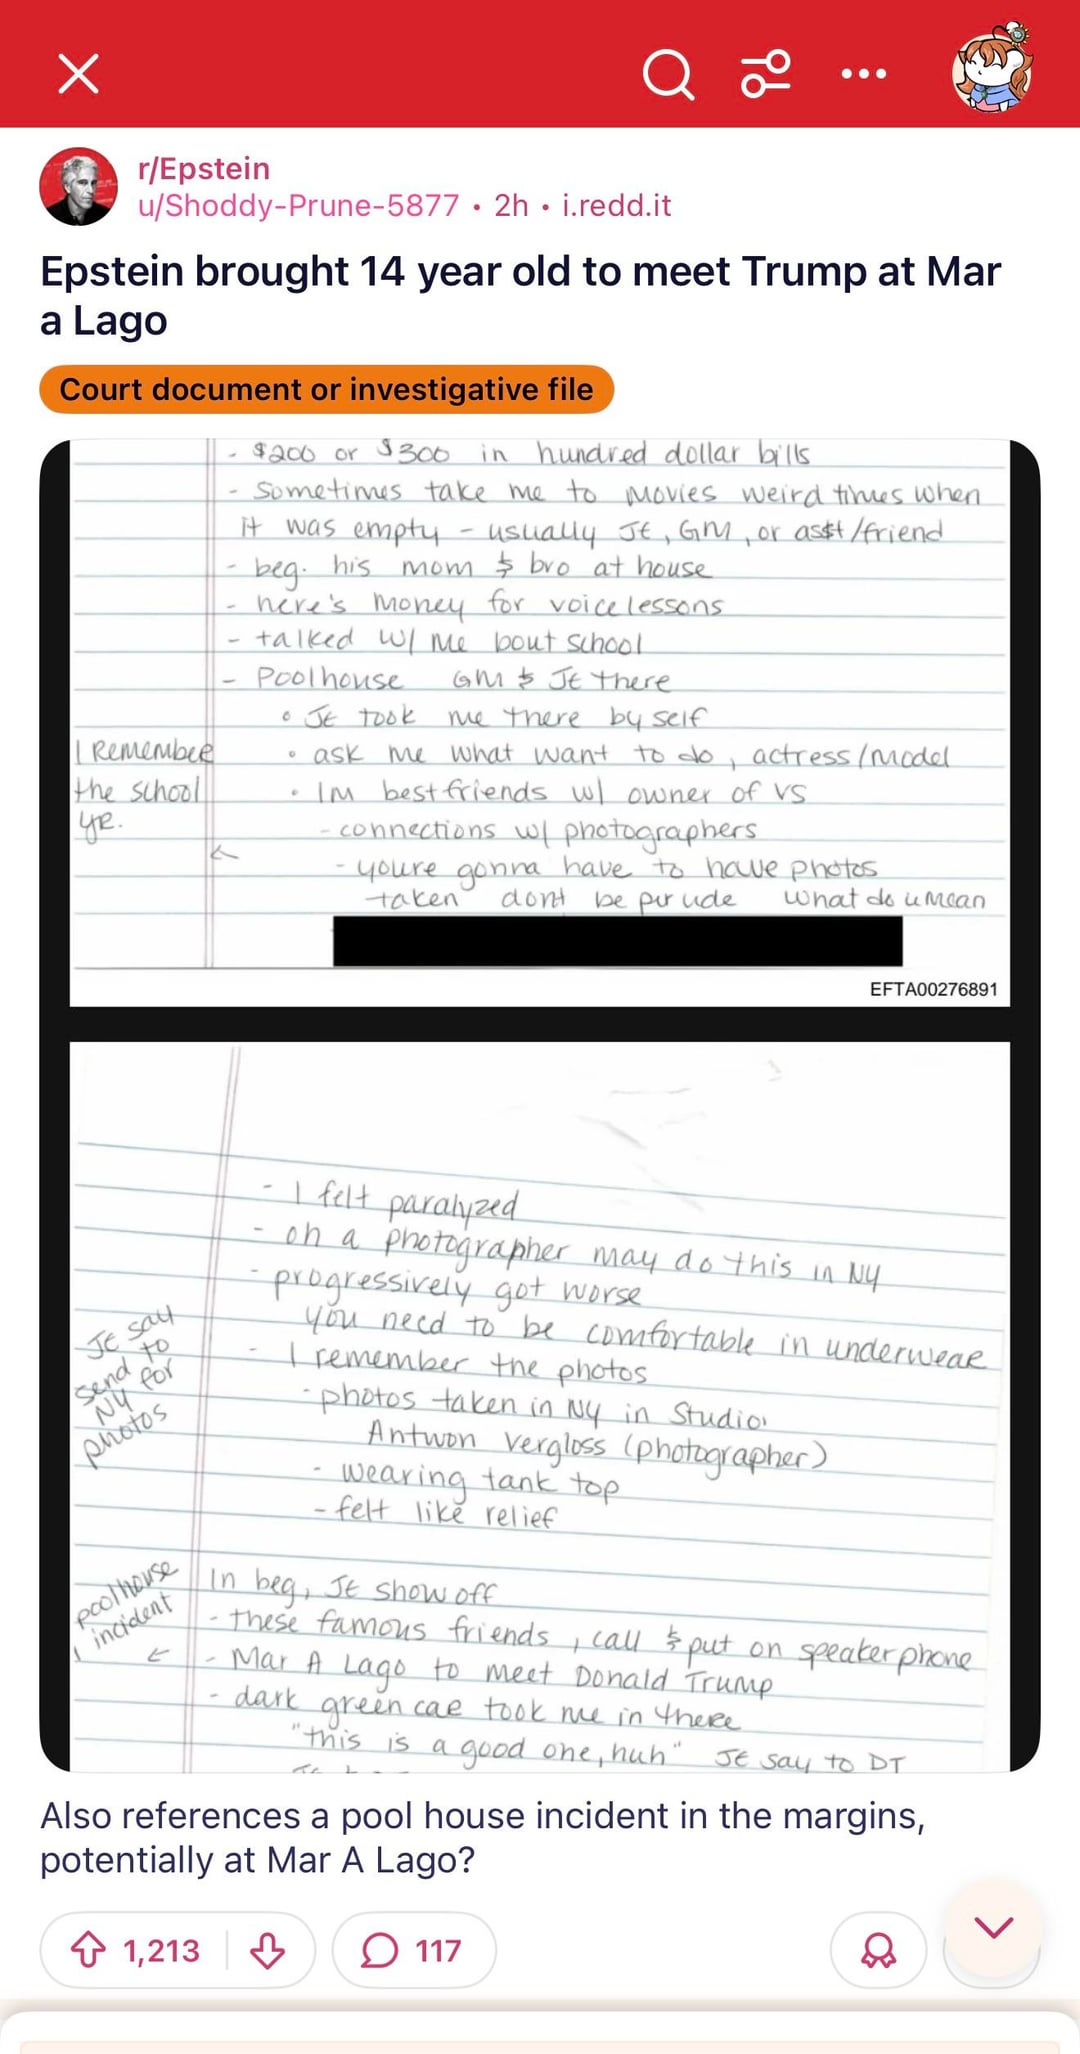 r/Epstein
u/Shoddy-Prune-5877 • 2h • i.redd.it
Epstein brought 14 year old to meet Trump at Mar
a Lago
Court document or investigative file
- $200 or $300 in hundred dollar bills
- Sometimes take me to movies weird times when
it was empty - usually JE, GM, or asst/friend
- beg. his mom & bro at house
- here's money for voice lessons
- talked w/ me bout school
- Poolhouse GM & JE there
• JE took me there by self
I Remember
the school
yr.
• ask me what want to do, actress/model
• Im best friends w/ owner of VS
- connections w/ photographers
- youre gonna have to have photos
taken dont be prude what do u mean
EFTA00276891
- I felt paralyzed
- oh a photographer may do this in NY
- progressively got worse
you need to be comfortable in underwear
JE say
send to
NY for
photos
- I remember the photos
- photos taken in NY in Studio
Antwon Vergloss (photographer)
- wearing tank top
- felt like relief
poolhouse
incident
In beg, JE show off
- these famous friends, call & put on speakerphone
- Mar A Lago to meet Donald Trump
- dark green car took me in there
"this is a good one, huh" JE say to DT
Also references a pool house incident in the margins,
potentially at Mar A Lago?
1,213
117